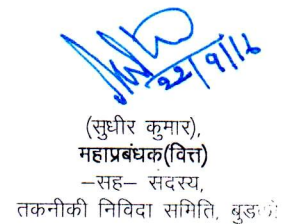 22/9/16
(सुधीर कुमार),
महाप्रबंधक(वित्त)
–सह– सदस्य,
तकनीकी निविदा समिति,